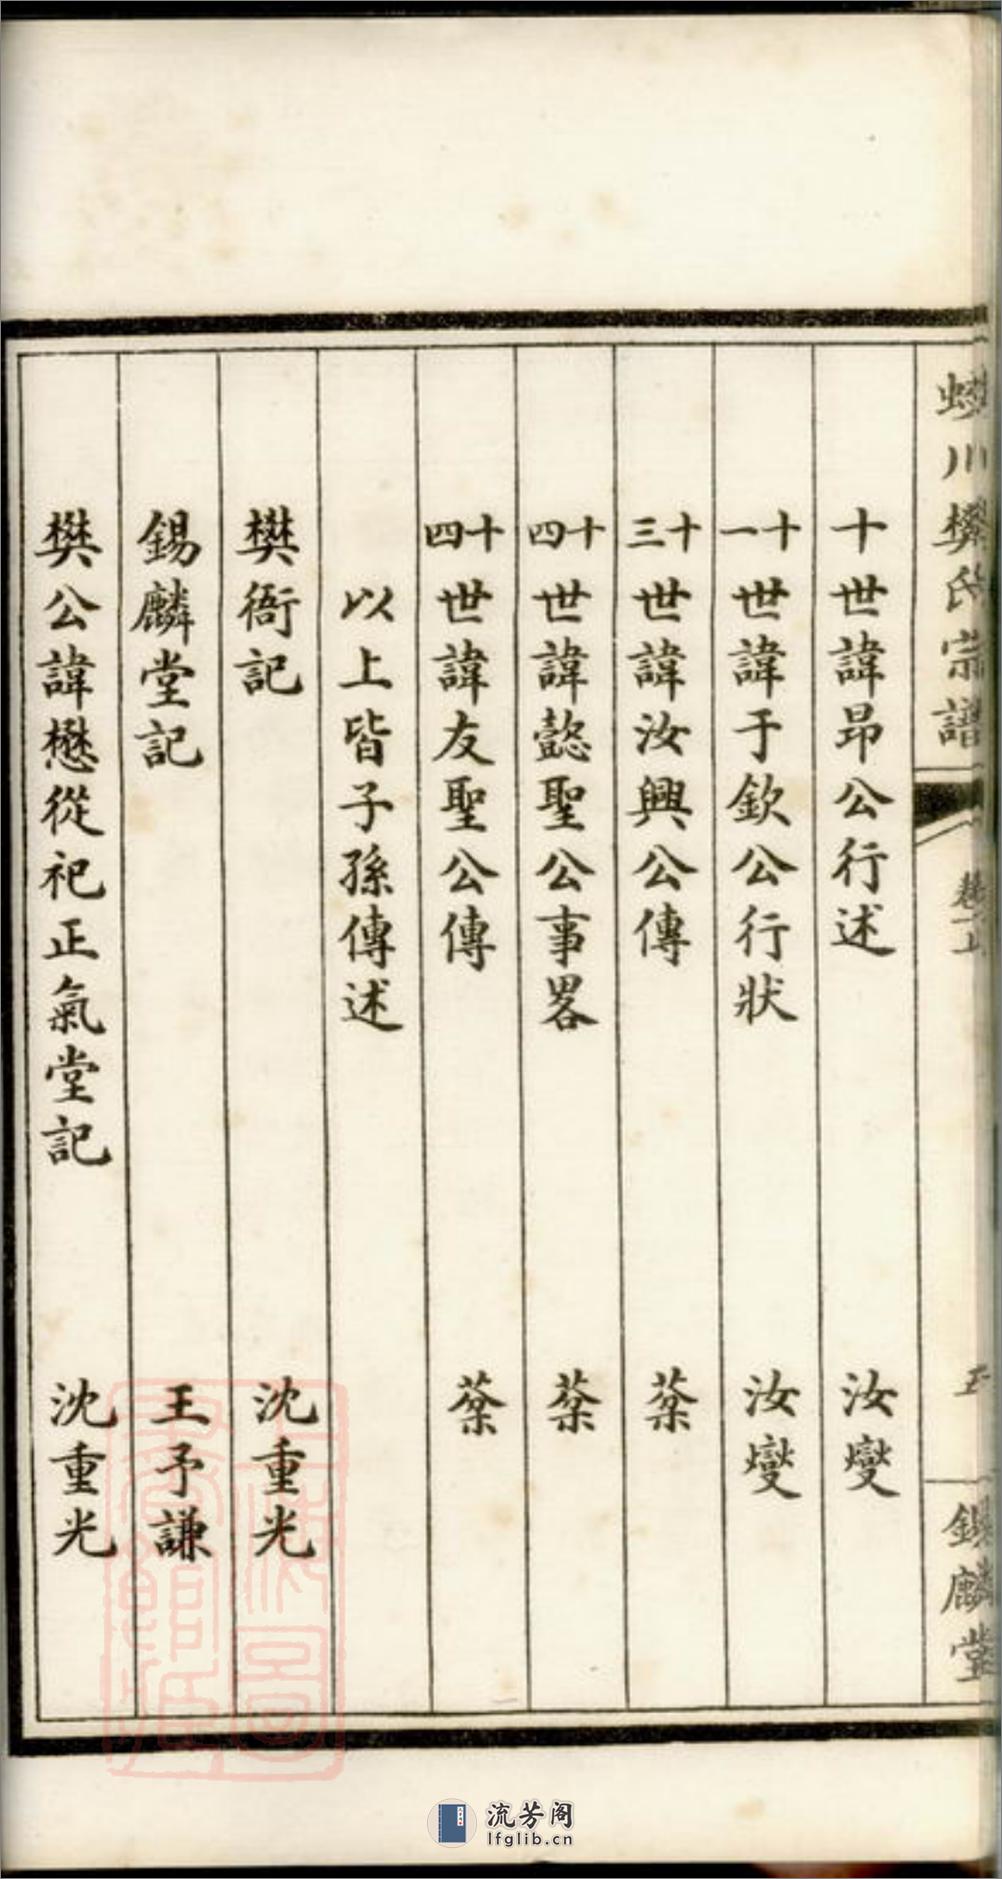 川樊氏宗譜
卷一上
五
錫麟堂
十世諱昂公行述 汝燮
十一世諱于欽公行狀 汝燮
十三世諱汝興公傳 棻
十四世諱懿聖公事畧 棻
十四世諱友聖公傳 棻
以上皆子孫傳述
樊衙記 沈重光
錫麟堂記 王予謙
樊公諱懋從祀正氣堂記 沈重光
上海圖書館藏
流芳阁
lfglib.cn